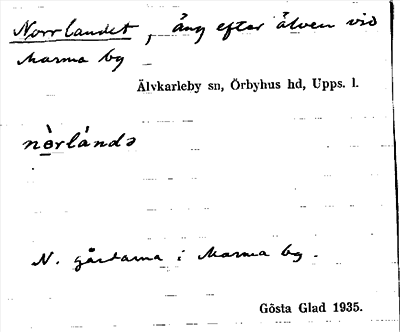 Norrlandet, äng efter älven vid
Marma by
Älvkarleby sn, Örbyhus hd, Upps. l.
nòrlándə
N. gårdarna i Marma by.
Gösta Glad 1935.